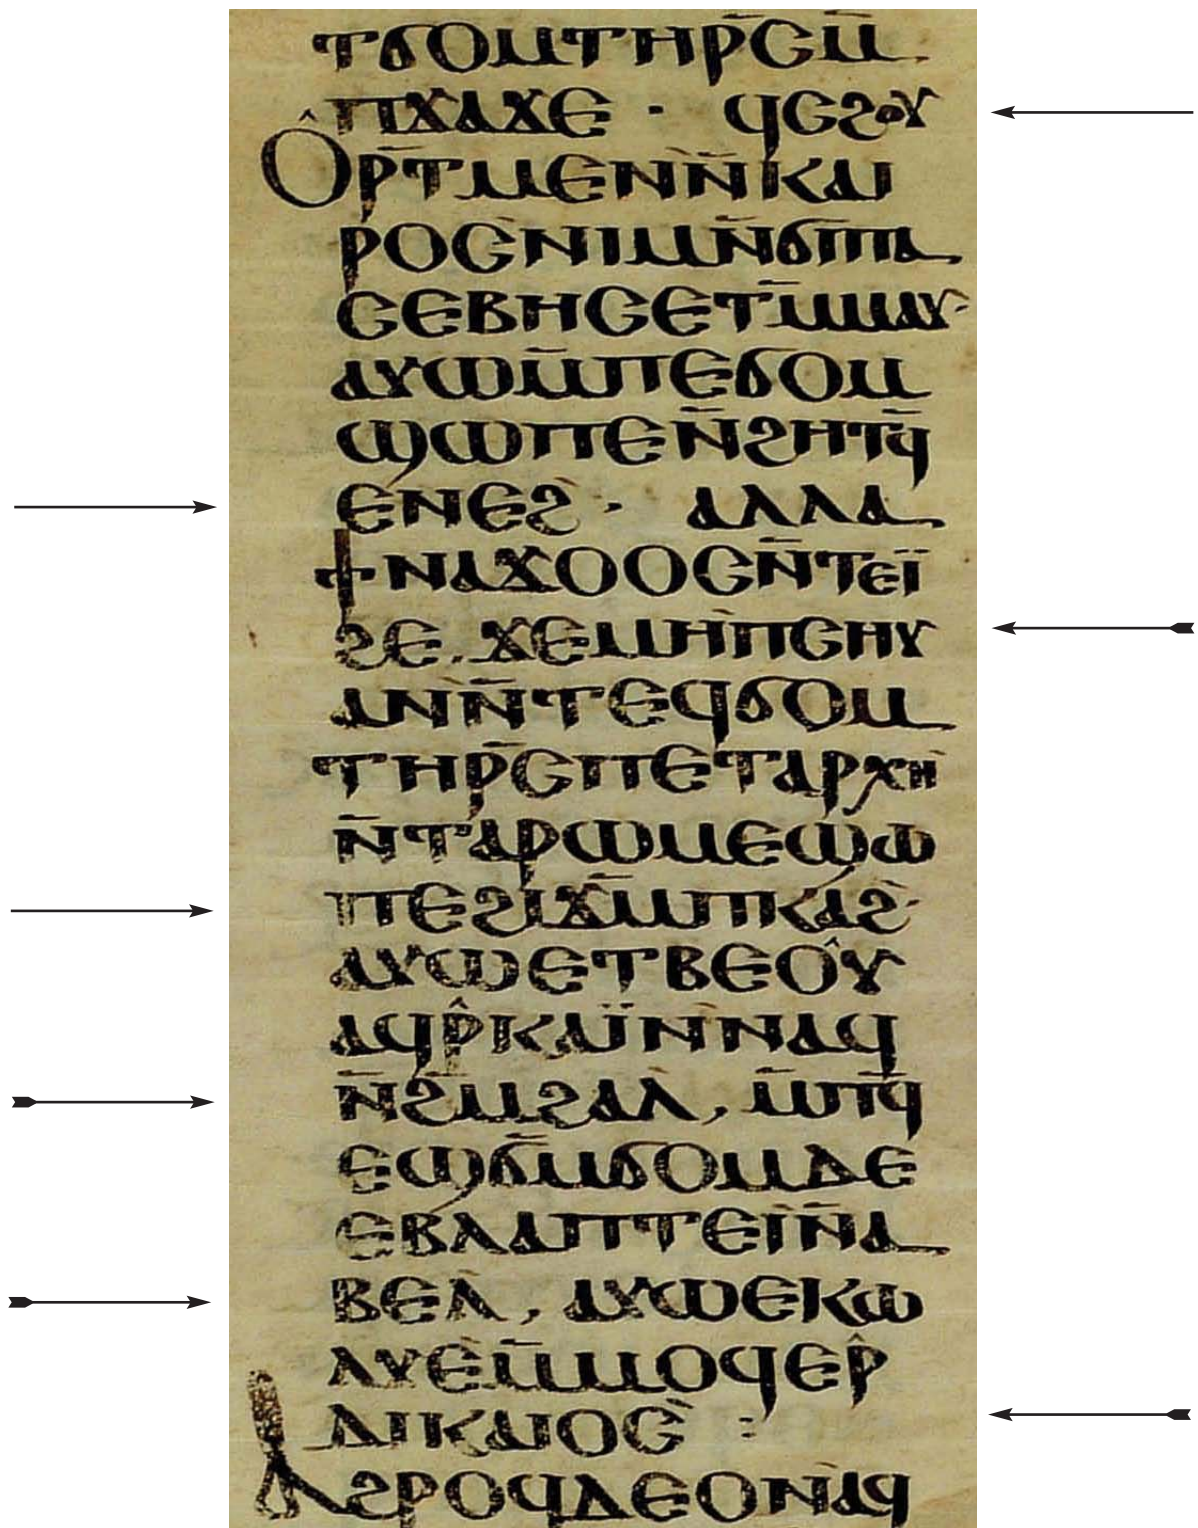 ⲧϭⲟⲙⲧⲏⲣ̅ⲥⲙ̅
ⲡϫⲁϫⲉ · ϥⲥϩⲟⲩ
ⲟ̂ⲣⲧ̅ⲙⲉⲛⲛ̅ⲕⲁⲓ
ⲣⲟⲥⲛⲓⲙⲛ̅ϭⲓⲡⲁ
ⲥⲉⲃⲏⲥⲉⲧⲙ̅ⲙⲁⲩ·
ⲁⲩⲱⲙ̅ⲡⲉϭⲟⲙ
ϣⲱⲡⲉⲛ̅ϩⲏⲧϥ̅
ⲉⲛⲉϩ · ⲁⲗⲗⲁ
ϯⲛⲁϫⲟⲟⲥⲛ̅ⲧⲉⲓ̈
ϩⲉ . ϫⲉⲙⲏⲡⲥⲏⲩ
ⲁⲛⲛ̅ⲧⲉϥϭⲟⲙ
ⲧⲏⲣ̅ⲥⲡⲉⲧⲁⲣⲭⲏ
ⲛ̅ⲧⲁⲣⲱⲙⲉϣⲱ
ⲡⲉϩⲓϫⲙ̅ⲡⲕⲁϩ·
ⲁⲩⲱⲉⲧⲃⲉⲟ̂ⲩ
ⲁϥⲣ̂ⲕⲁⲓ̈ⲛⲛⲁϥ
ⲛ̅ϩⲙϩⲁⲗ , ⲙ̅ⲡϥ̅
ⲉϣϭⲙ̅ϭⲟⲙⲇⲉ
ⲉⲃⲗⲁⲡⲧⲉⲓⲛ̅ⲁ
ⲃⲉⲗ , ⲁⲩⲱⲉⲕⲱ
ⲗⲩⲉⲙ̅ⲙⲟϥⲉⲣ̂
ⲇⲓⲕⲁⲓⲟⲥ :
ⲁϩⲣⲟϥⲇⲉⲟⲛⲁϥ